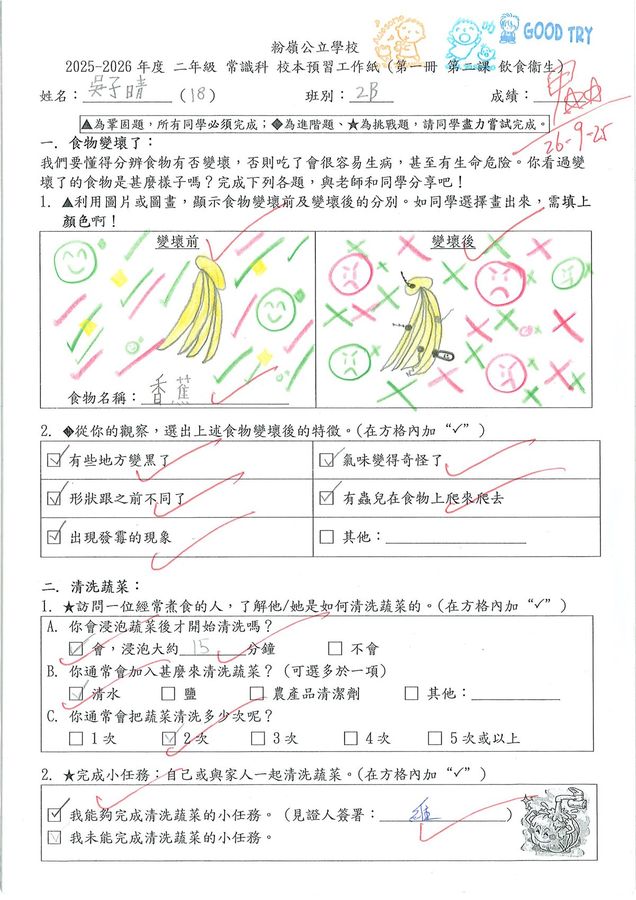 Awesome
GOOD TRY
粉嶺公立學校
2025-2026 年度 二年級 常識科 校本預習工作紙 (第一冊 第二課 飲食衞生)
姓名：吳子晴 (18) 班別：2B 成績：甲
26-9-25
▲為鞏固題，所有同學必須完成；◆為進階題、★為挑戰題，請同學盡力嘗試完成。
一. 食物變壞了：
我們要懂得分辨食物有否變壞，否則吃了會很容易生病，甚至有生命危險。你看過變
壞了的食物是甚麼樣子嗎？完成下列各題，與老師和同學分享吧！
1. ▲利用圖片或圖畫，顯示食物變壞前及變壞後的分別。如同學選擇畫出來，需填上
顏色啊！
變壞前 變壞後
食物名稱：香蕉
2. ◆從你的觀察，選出上述食物變壞後的特徵。(在方格內加“✓”)
☑ 有些地方變黑了 ☑ 氣味變得奇怪了
☑ 形狀跟之前不同了 ☑ 有蟲兒在食物上爬來爬去
☑ 出現發霉的現象 □ 其他：
二. 清洗蔬菜：
1. ★訪問一位經常煮食的人，了解他/她是如何清洗蔬菜的。(在方格內加“✓”)
A. 你會浸泡蔬菜後才開始清洗嗎？
☑ 會，浸泡大約 15 分鐘 □ 不會
B. 你通常會加入甚麼來清洗蔬菜？ (可選多於一項)
☑ 清水 □ 鹽 □ 農產品清潔劑 □ 其他：
C. 你通常會把蔬菜清洗多少次呢？
□ 1 次 ☑ 2 次 □ 3 次 □ 4 次 □ 5 次或以上
2. ★完成小任務：自己或與家人一起清洗蔬菜。(在方格內加“✓”)
☑ 我能夠完成清洗蔬菜的小任務。 (見證人簽署：)
☑ 我未能完成清洗蔬菜的小任務。